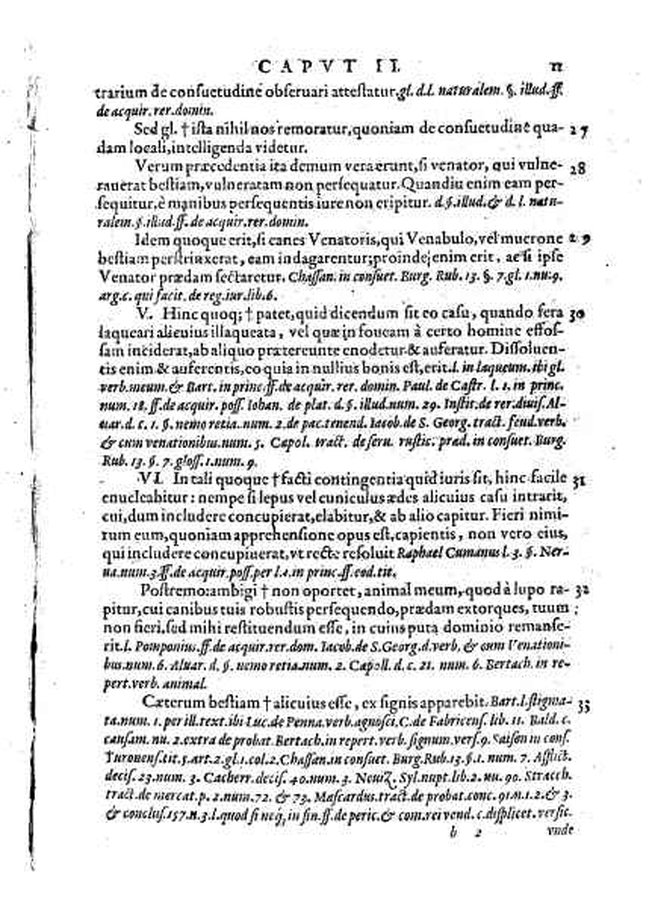 CAPVT II. 11
trarium de consuetudinē obseruari attestatur. gl. d.l. naturalem. §. illud. ff.
de acquir. rer. domin.
Sed gl. † ista nihil nos remoratur, quoniam de consuetudinē qua- 27
dam locali, intelligenda videtur.
Verum præcedentia ita demum vera erunt, si venator, qui vulne- 28
rauerat bestiam, vulneratam non persequatur. Quandiu enim eam per-
sequitur, è manibus persequentis iure non eripitur. d. §. illud. & d. l. natu-
ralem. §. illud. ff. de acquir. rer. domin.
Idem quoque erit, si canes Venatoris, qui Venabulo, vel mucrone 29
bestiam perstrinxerat, eam indagarentur; proinde, enim erit, ac si ipse
Venator prædam sectaretur. Chassan. in consuet. Burg. Rub. 13. §. 7. gl. 1. nu. 9.
arg. c. qui facit. de reg. iur. lib. 6.
V. Hinc quoq; † patet, quid dicendum sit eo casu, quando fera 30
laqueari alicuius illaqueata, vel quæ in foueam à certo homine effos-
sam inciderat, ab aliquo prætereunte enodetur & auferatur. Dissoluen-
tis enim & auferentis, eo quia in nullius bonis est, erit. l. in laqueum. ibi gl.
verb. meum. & Bart. in princ. ff. de acquir. rer. domin. Paul. de Castr. l. 1. in princ.
num. 18. ff. de acquir. poss. Iohan. de plat. d. §. illud. num. 29. Instit. de rer. diuis. Al-
uar. d. c. 1. §. nemo retia. num. 2. de pac. tenend. Iacob. de S. Georg. tract. feud. verb.
& cum venationibus. num. 5. Capol. tract. de seru. rustic. præd. in consuet. Burg.
Rub. 13. §. 7. gloss. 1. num. 9.
VI. In tali quoque † facti contingentia quid iuris sit, hinc facile 31
enucleabitur: nempe si lepus vel cuniculus ædes alicuius casu intrarit,
cui, dum includere concupierat, elabitur, & ab alio capitur. Fieri nimi-
rum eum, quoniam apprehensione opus est, capientis, non vero eius,
qui includere concupiuerat, vt recte resoluit Raphael Cumanus l. 3. §. Ner-
ua. num. 3. ff. de acquir. poss. per l. 1. in princ. ff. eod. tit.
Postremo: ambigi † non oportet, animal meum, quod à lupo ra- 32
pitur, cui canibus tuis robustis persequendo, prædam extorques, tuum
non fieri, sed mihi restituendum esse, in cuius puta dominio remanse-
rit. l. Pomponius. ff. de acquir. rer. dom. Iacob. de S. Georg. d. verb, & cum Venationi-
bus. num. 6. Aluar. d. §. nemo retia. num. 2. Capoll. d. c. 21. num. 6. Bertach. in re-
pert. verb. animal.
Cæterum bestiam † alicuius esse, ex signis apparebit. Bart. l. stigma- 33
ta. num. 1. per ill. text. ibi Luc. de Penna. verb. agnosci. C. de Fabricens. lib. 11. Bald. c.
causam. nu. 2. extra de probat. Bertach. in repert. verb. signum. vers. 9. Saison in cons.
Turonens. tit. 5. art. 2. gl. 1. col. 2. Chassan. in consuet. Burg. Rub. 13. §. 1. num. 7. Afflict.
decis. 23. num. 3. Cacherr. decis. 40. num. 3. Neuiz. Syl. nupt. lib. 2. nu. 90. Stracch.
tract. de mercat. p. 2. num. 72. & 73. Mascardus. tract. de probat. conc. 91. n. 1. 2. & 3.
& conclus. 157. n. 3. l. quod si neq, in fin. ff. de peric. & com. rei vend. c. displicet. versic.
b 2 vnde